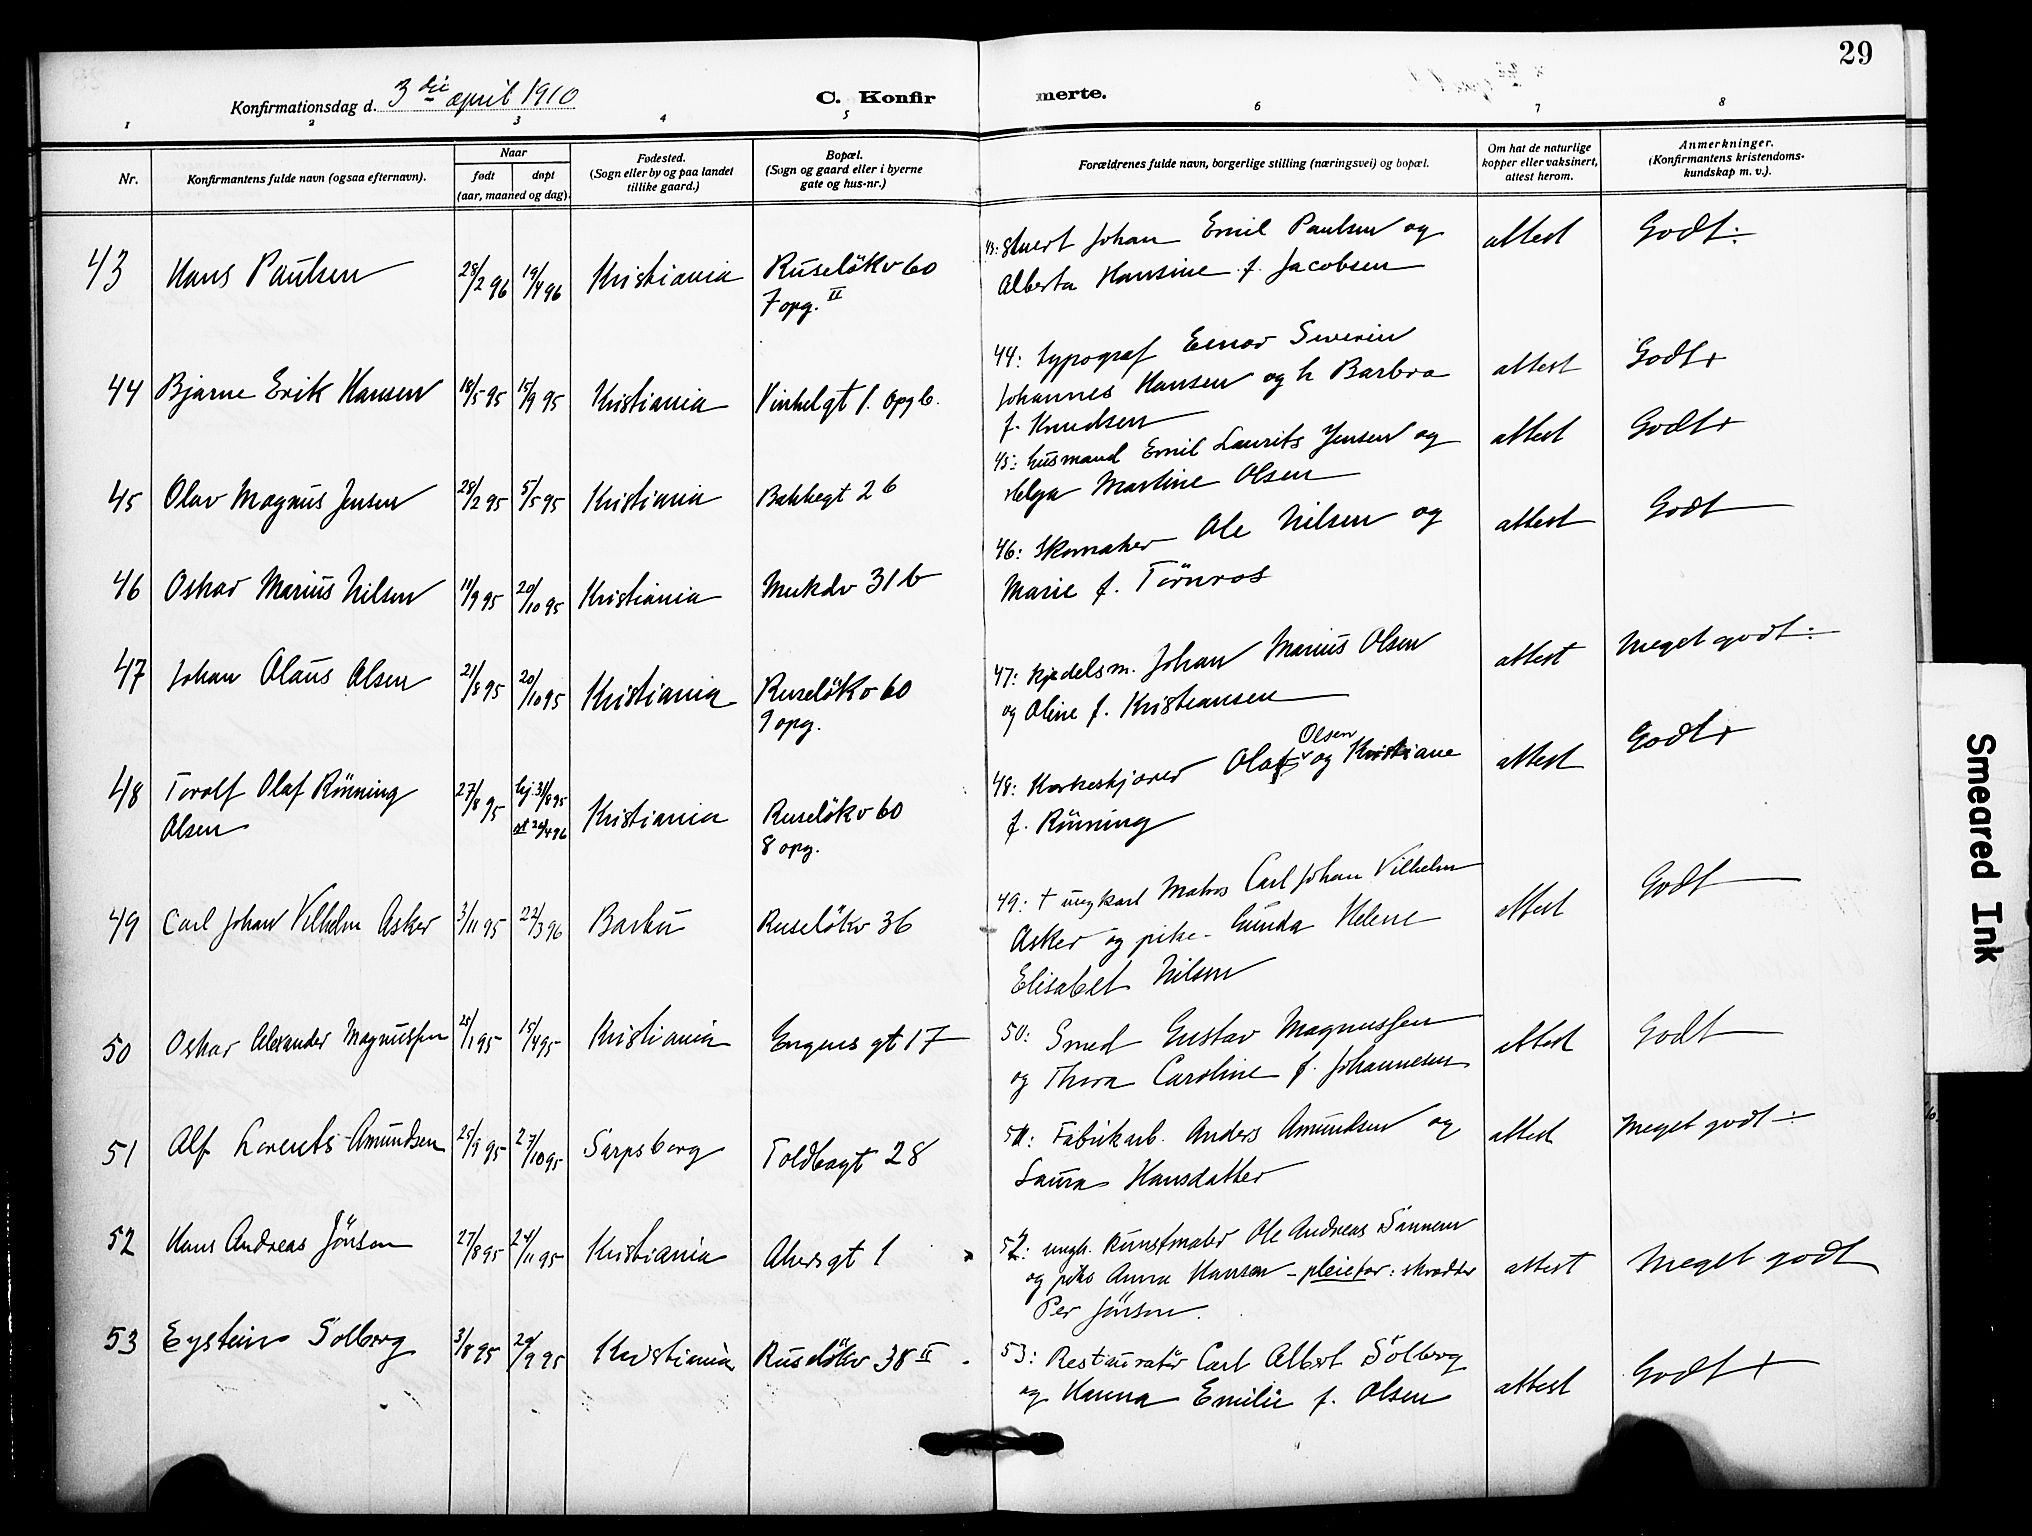 29
Konfirmationsdag d. 3die april 1910
C. Konfirmerte.
1 2 3 4 5 6 7 8
Nr.
Konfirmantens fulde navn (ogsaa efternavn).
Naar
født
døpt
(aar, maaned og dag).
Fødested.
(Sogn eller by og paa landet
tillike gaard.)
Bopæl.
(Sogn og gaard eller i byerne
gate og hus-nr.)
Forældrenes fulde navn, borgerlige stilling (næringsvei) og bopæl.
Om hat de naturlige
kopper eller vaksinert,
attest herom.
Anmerkninger.
(Konfirmantens kristendoms-
kundskap m. v.).
43 Hans Paulsen 28/2 96 19/4 96 Kristiania Ruseløkv 60
7 opg. II
43: Johan Emil Paulsen og
Alberta Hansine f. Jacobsen
attest Godt÷
44 Bjarne Erik Hansen 18/5 95 15/9 95 Kristiania Vinkelgt 1. opg 6.
44: typograf Einar Severin
Johannes Hansen og h Barbra
f. Knudsen
attest Godt+
45 Olav Magnus Jensen 28/2 95 5/5 95 Kristiania Bakkegt 26
45: husmand Emil Laurits Jensen og
Helga Martine Olsen
attest Godt+
46 Oskar Marius Nilsen 11/9 95 20/10 95 Kristiania Munkdv 31 b
46: Skomaker Ole Nilsen og
Marie f. Törnros
attest Godt
47 Johan Olaus Olsen 21/8 95 20/10 95 Kristiania Ruseløkv 60
9 opg.
47: Kjedelsm. Johan Marius Olsen
og Oline f. Kristiansen
attest Meget godt÷
48 Torolf Olaf Rönning
Olsen
27/8 95 hj. 31/8 95
st 26/4 96
Kristiania Ruseløkv 60
8 opg.
48: Korkeskjærer Olaf Olsen og Kristiane
f. Rönning
attest Godt+
49 Carl Johan Vilhelm Asker 3/11 95 22/3 96 Barbu Ruseløkv 36
49: + ungkarl Matros Carl Johan Vilhelm
Asker og pike Gunda Helene
Elisabet Nilsen
attest Godt
50 Oskar Alexander Magnussen 25/1 95 15/4 95 Kristiania Engens gt 17
50: Smed Gustav Magnussen
og Thora Caroline f. Johannesen
attest Godt
51 Alf Lorents Amundsen 25/9 95 27/10 95 Sarpsborg Toldbogt 28
51: Fabrikarb. Anders Amundsen og
Laura Hansdatter
attest Meget godt÷
52 Hans Andreas Jönsen 27/8 95 24/11 95 Kristiania Akersgt 1
52: ungk. kunstmaler Ole Andreas Sönnem
og pike Anna Hansen - pleiefar: skrædder
Per Jönsen.
attest Meget godt
53 Eystein Solberg 3/8 95 29/9 95 Kristiania Ruseløkv 38 II
53: Restauratör Carl Albert Sölberg
og Hanna Emilie f. Olsen
attest Godt +
Smeared Ink